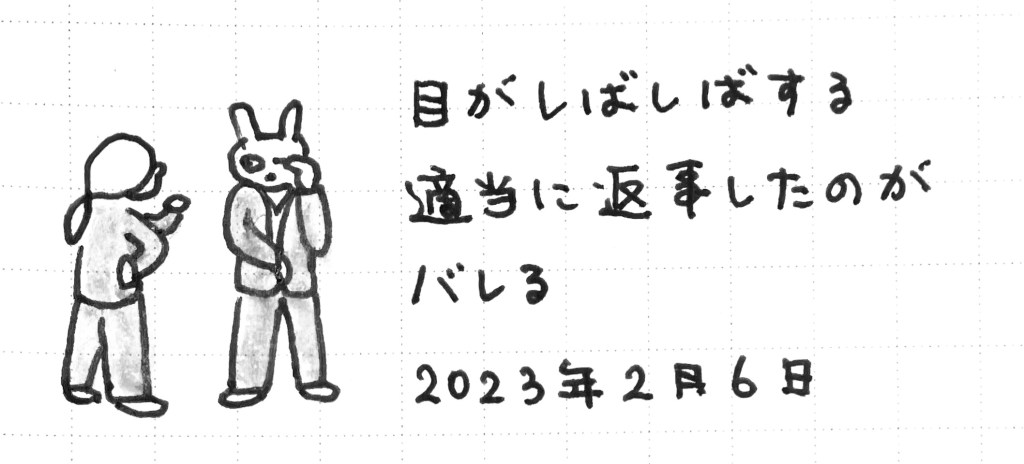 目がしばしばする
適当に返事したのが
バレる
2023年2月6日